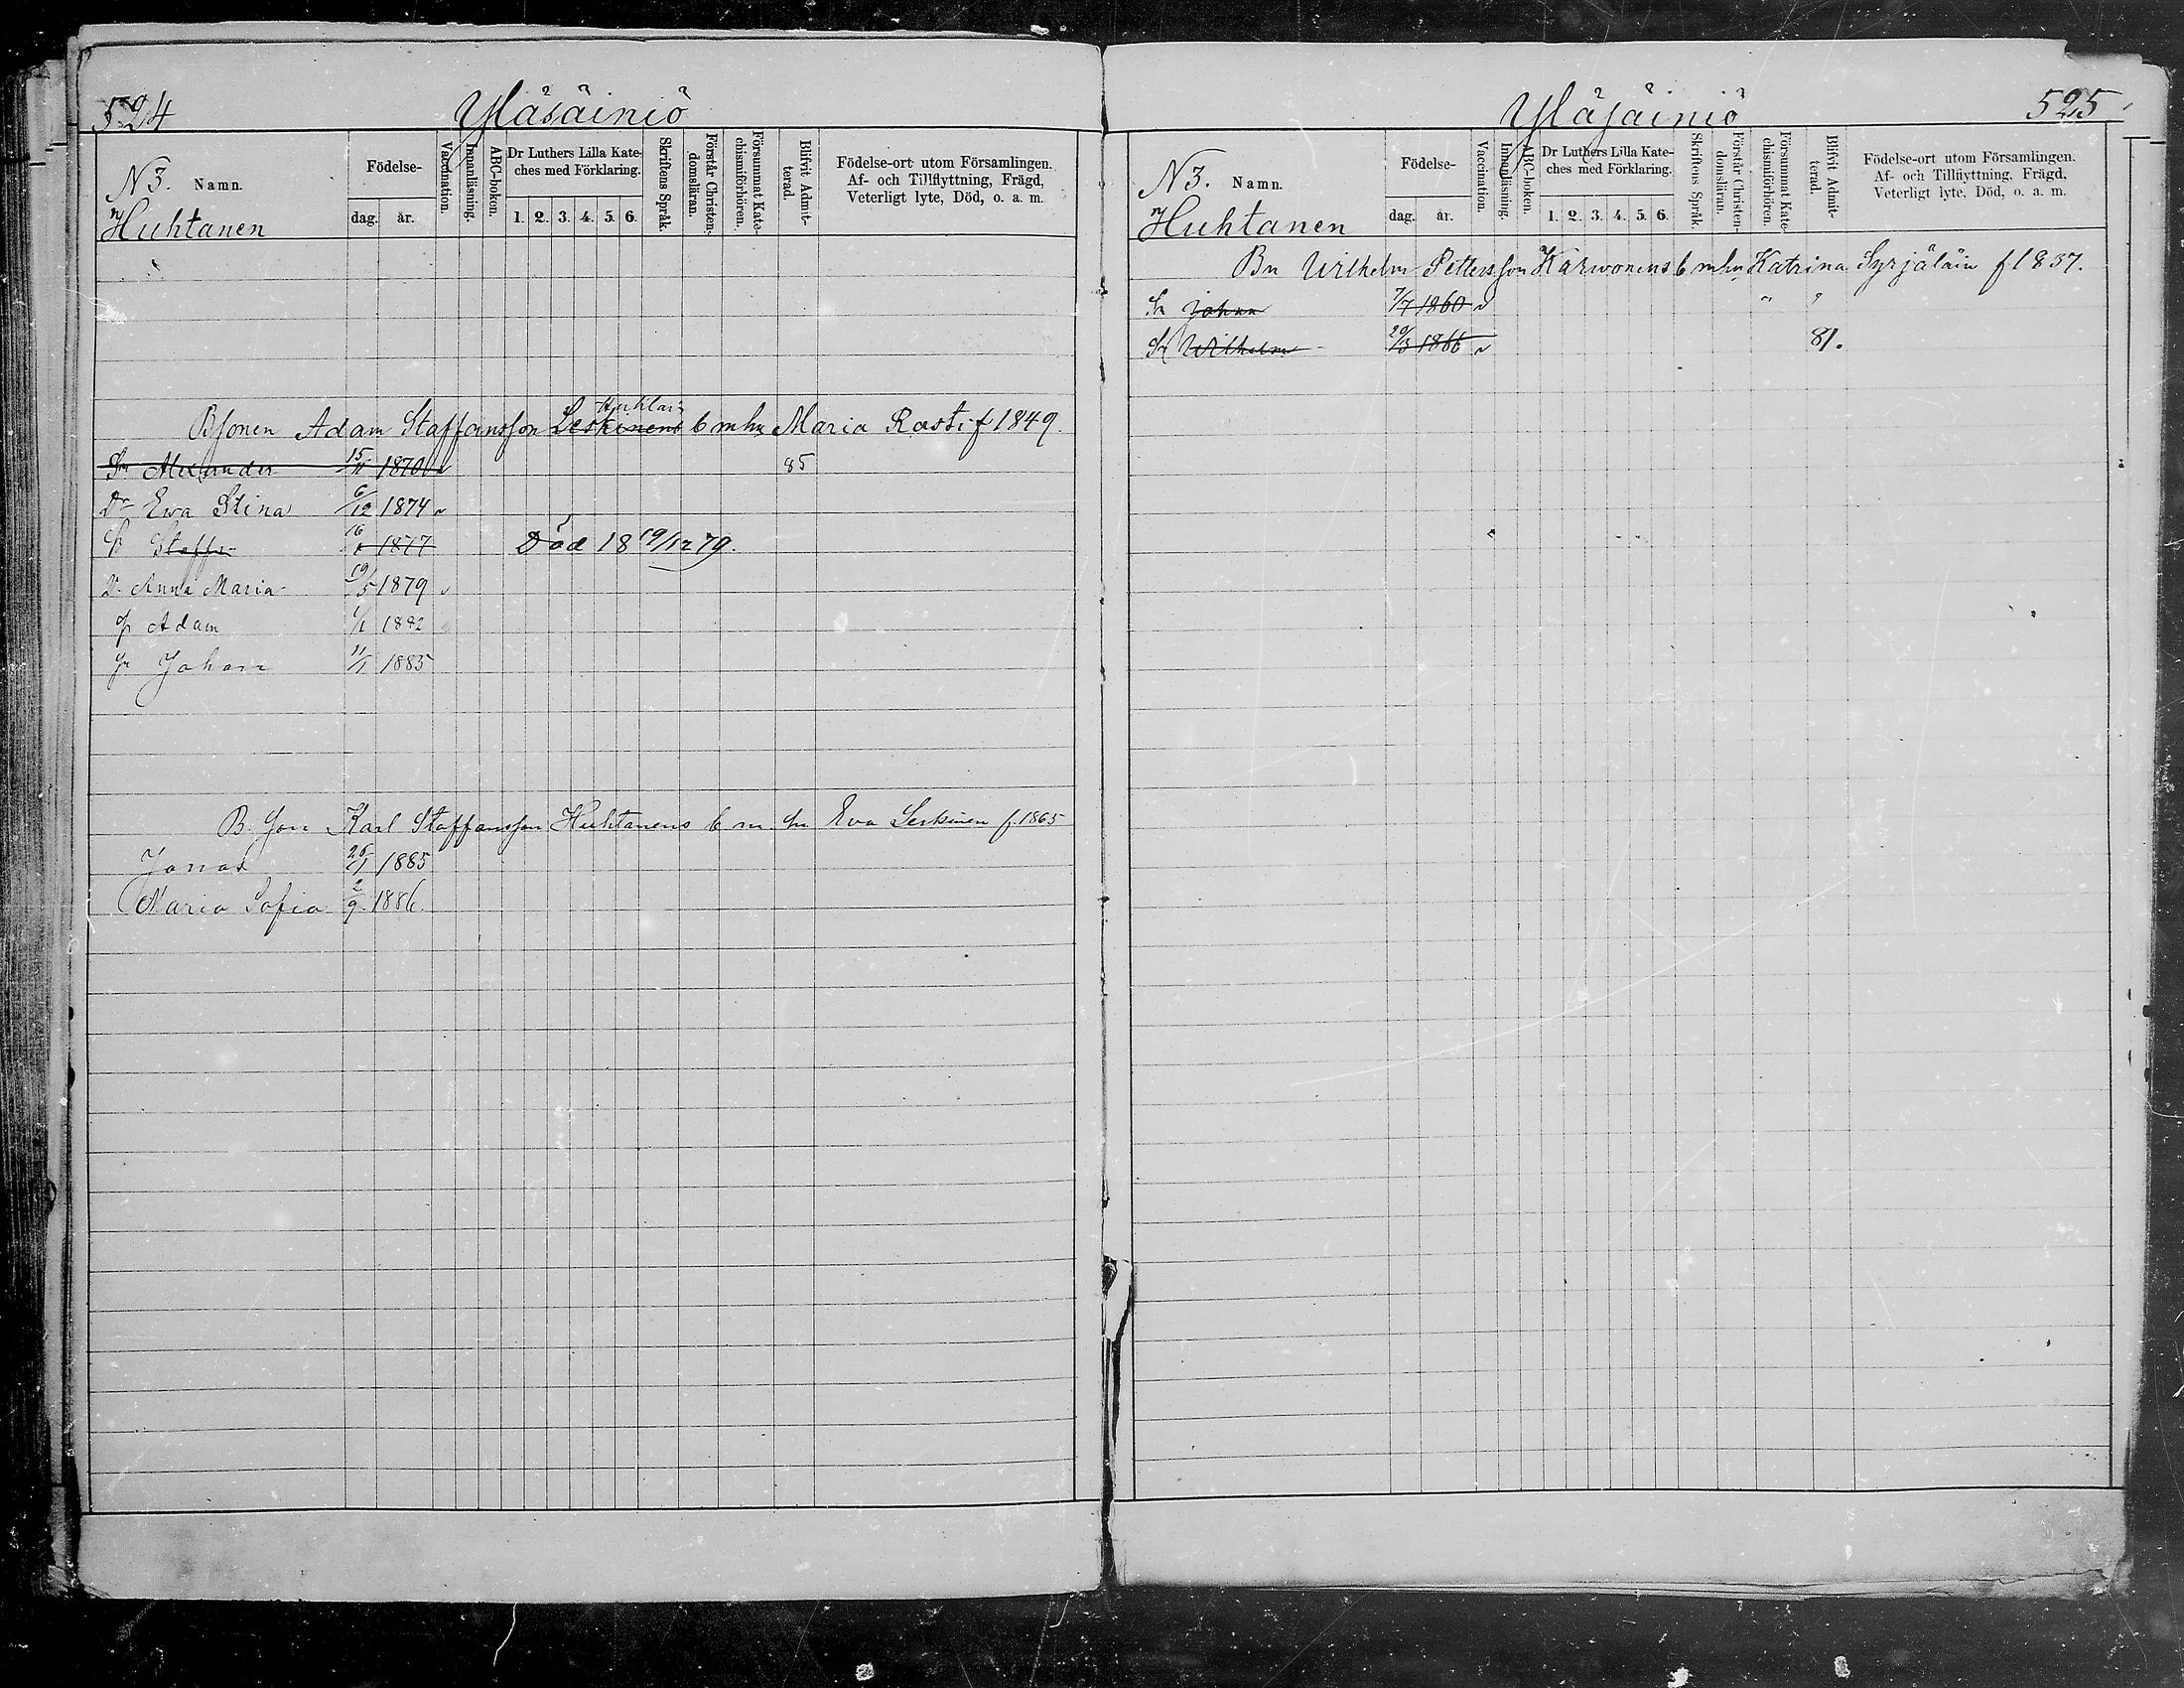 524
Yläsäiniö
N 3. Namn.
Huhtanen
Födelse-
dag.
år.
Vaccination.
Innanläsning.
ABC-boken.
Dr Luthers Lilla Kate-
ches med Förklaring.
1. 2. 3. 4. 5. 6.
Skriftens Språk.
Förstår Christen-
domsläran.
Försummat Kate-
chismiförhören.
Blifvit Admit-
terad.
Födelse-ort utom Församlingen.
Af- och Tillflyttning, Frägd,
Veterligt lyte, Död, o. a. m.
Bsonen Adam Staffansson Leskinens b m hu Maria Rasti f 1849.
Sn Alexander 15/11 1870 85
Dr Ewa Stina 6/12 1874
Staffan 1877 Död 18 19/12 79.
D. Anna Maria 19/5 1879
Adam 1/1 1882
Johan 11/1 1885
B. Son Karl Staffansson Huhtanens b m hu Eva Leskinen f. 1865
Jonas 25/1 1885
Maria Sofia 2/9 1886.
Yläsäiniö
525
N 3. Namn.
Huhtanen
Födelse-
dag.
år.
Vaccination.
Innanläsning.
ABC-boken.
Dr Luthers Lilla Kate-
ches med Förklaring.
1. 2. 3. 4. 5. 6.
Skriftens Språk.
Förstår Christen-
domsläran.
Försummat Kate-
chismiförhören.
Blifvit Admit-
terad.
Födelse-ort utom Församlingen.
Af- och Tillflyttning, Frägd,
Veterligt lyte, Död, o. a. m.
Bn Wilhelm Pettersson Karwonens b m hu Katrina Syrjäläin f 1837.
Sn Johan 7/7 1860 " "
Sn Wilhelm 20/3 1866 81.